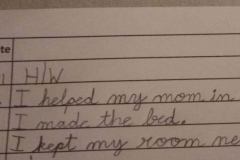 te
H/W
I helped my mom in
I made the bed.
I kept my room ne